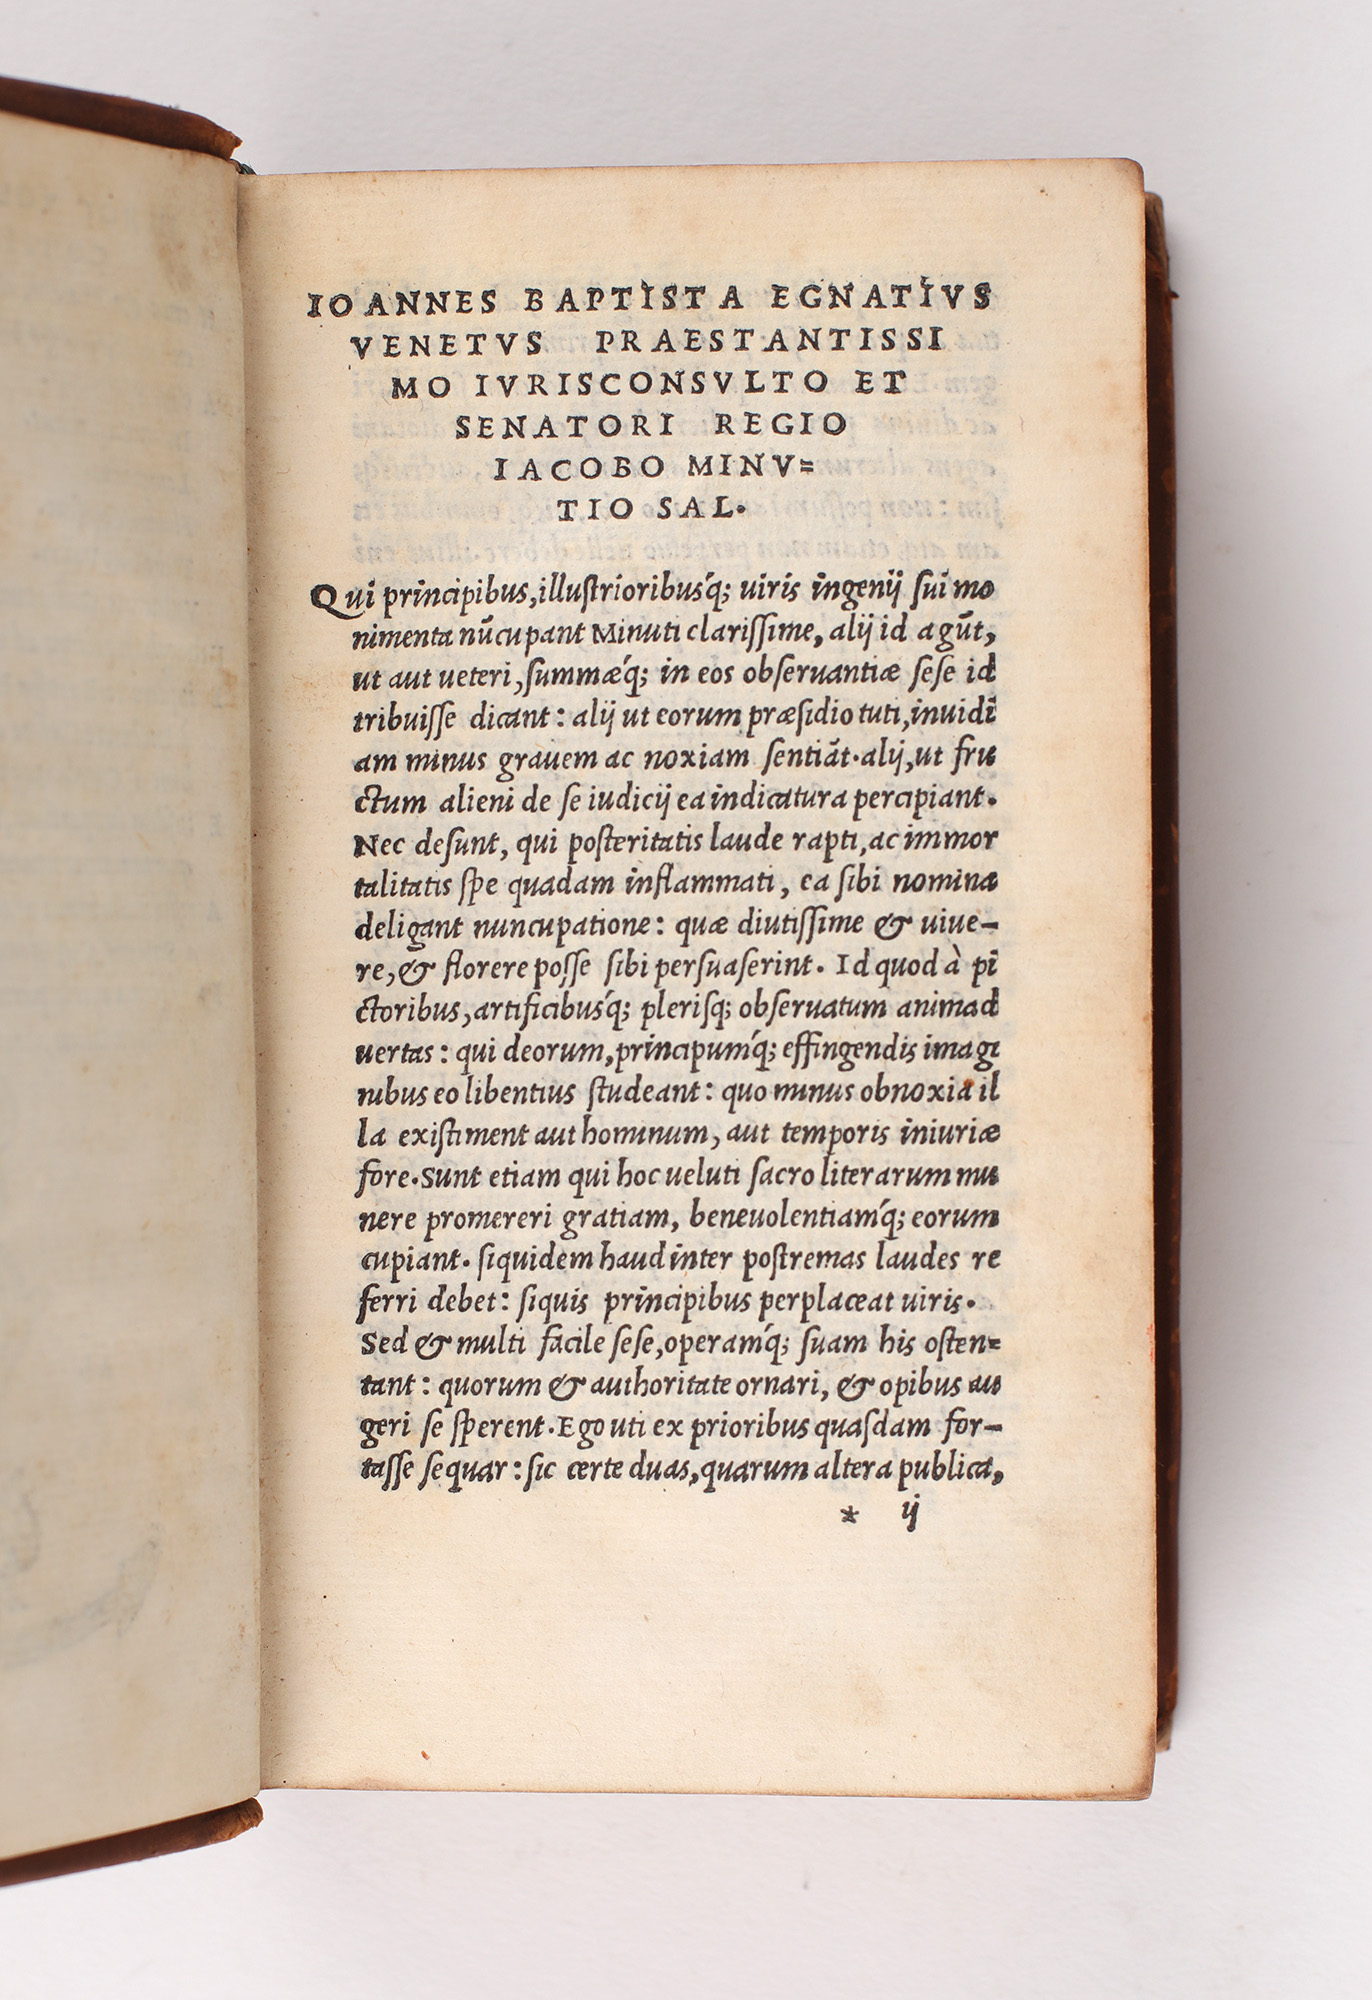 IOANNES BAPTISTA EGNATIVS
VENETVS PRAESTANTISSI
MO IVRISCONSVLTO ET
SENATORI REGIO
IACOBO MINV=
TIO SAL.
Qui principibus, illuſtrioribusq́; uiris ingenij ſui mo
nimenta nũcupant Minuti clariſſime, alij id agũt,
ut aut ueteri, ſummæq́; in eos obſeruantiæ ſeſe id
tribuiſſe dicant: alij ut eorum præſidio tuti, inuidi
am minus grauem ac noxiam ſentiãt. alij, ut fru
ctum alieni de ſe iudicij ea indicatura percipiant.
Nec deſunt, qui poſteritatis laude rapti, ac immor
talitatis ſpe quadam inflammati, ea ſibi nomina
deligant nuncupatione: quæ diutiſſime & uiue-
re, & florere poſſe ſibi perſuaſerint. Id quod à pi
ctoribus, artificibusq́; pleriſq; obſeruatum animad
uertas: qui deorum, principumq́; effingendis imagi
nibus eo libentius ſtudeant: quo minus obnoxia il
la exiſtiment aut hominum, aut temporis iniuriæ
fore. Sunt etiam qui hoc ueluti ſacro literarum mu
nere promereri gratiam, beneuolentiamq́; eorum
cupiant. ſiquidem haud inter poſtremas laudes re
ferri debet: ſiquis principibus perplaceat uiris.
Sed & multi facile ſeſe, operamq́; ſuam his oſten=
tant: quorum & authoritate ornari, & opibus au
geri ſe ſperent. Ego uti ex prioribus quaſdam for-
taſſe ſequar: ſic certe duas, quarum altera publica,
* ij